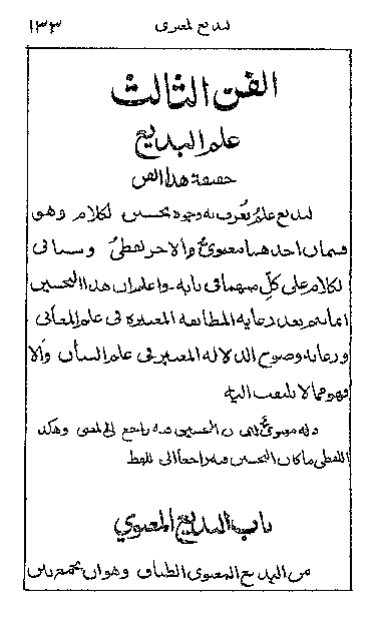 البديع المعنوي ١٣٣
الفن الثالث
علم البديع
حقيقة هذا الفن
البديع علم يُعرف به وجوه تحسين الكلام وهو
قسمان احدهما معنويٌ والاخر لفظيٌ وسياتى
الكلام على كلِّ منهما فى بابه. واعلم ان هذا التحسين
انما يتم بعد رعاية المطابقة المعتبرة فى علم المعانى
ورعاية وضوح الدلالة المعتبر فى علم البيان والا
فهو مما لا يلتفت اليه
معنويٌ التحسين فيه راجع الى المعنى وهكذا
اللفظى ما كان التحسين فيه راجعا الى اللفظ
باب البديع المعنوي
من البديع المعنوى الطباق وهو ان يجمع بين